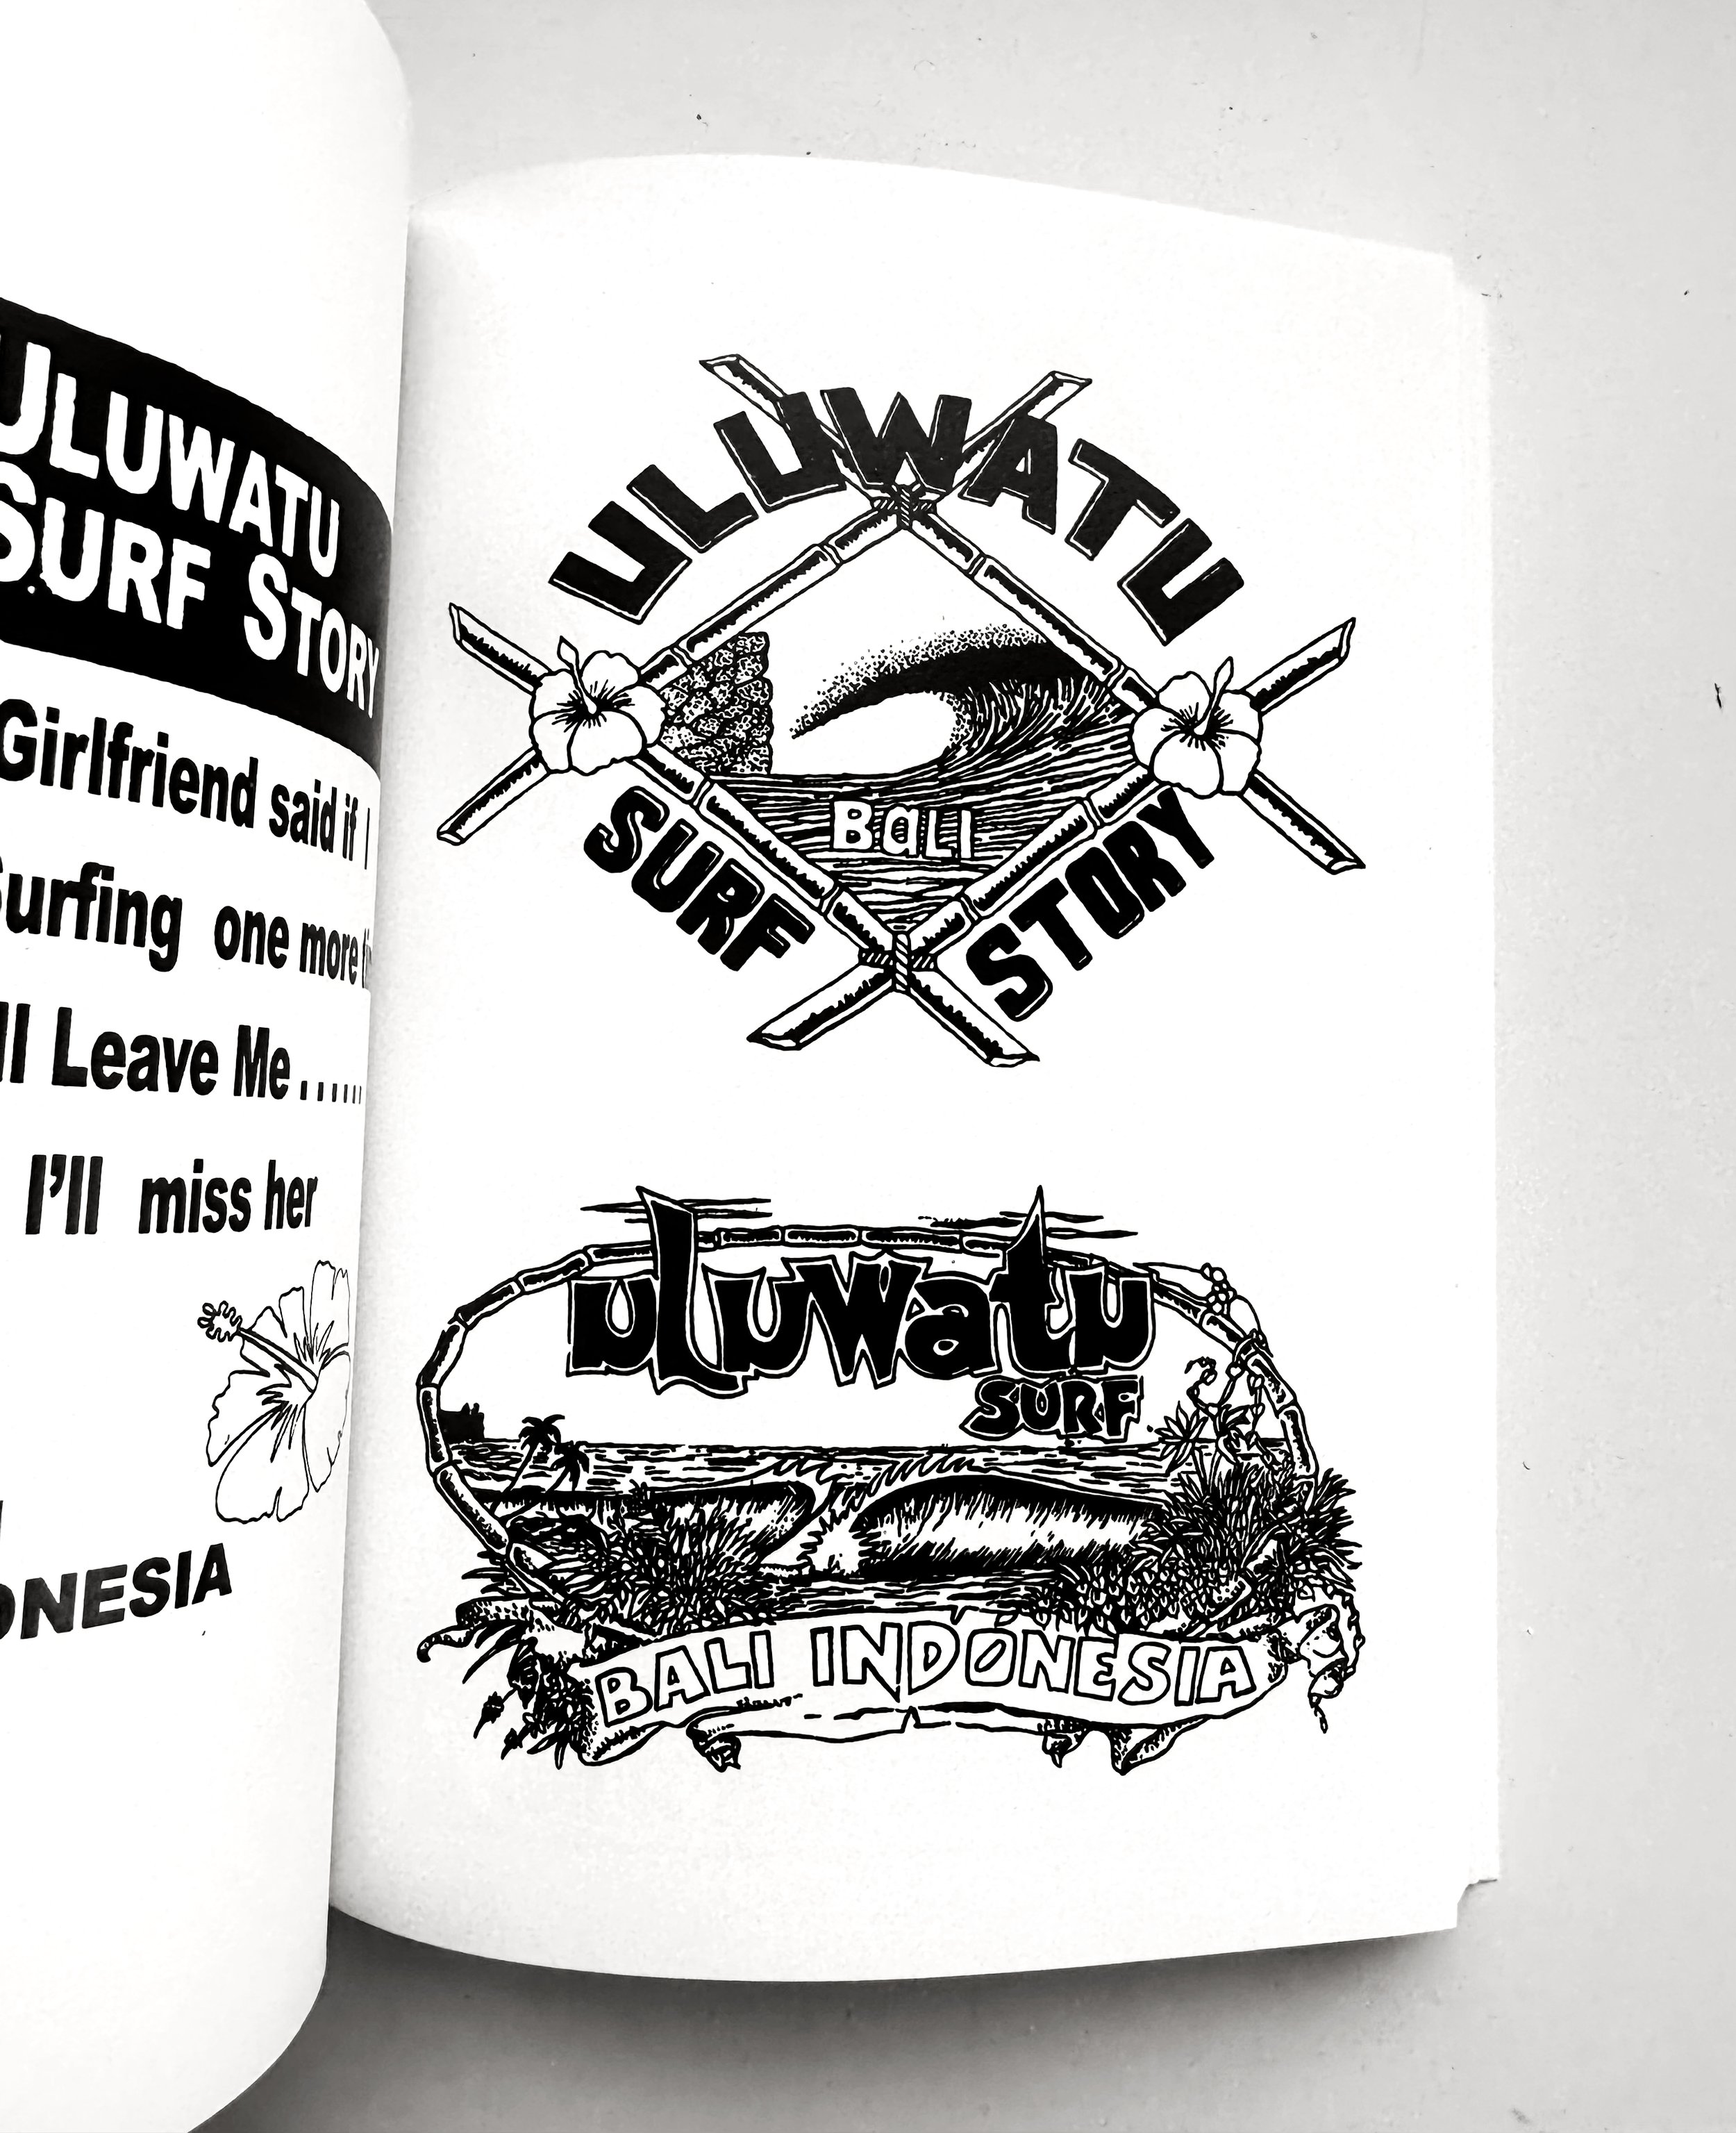 ULUWATU
SURF STORY
Girlfriend said if I
Surfing one more
Leave Me......
I'll miss her
ULUWATU
BALI
SURF STORY
uluwatu
SURF
BALI INDONESIA